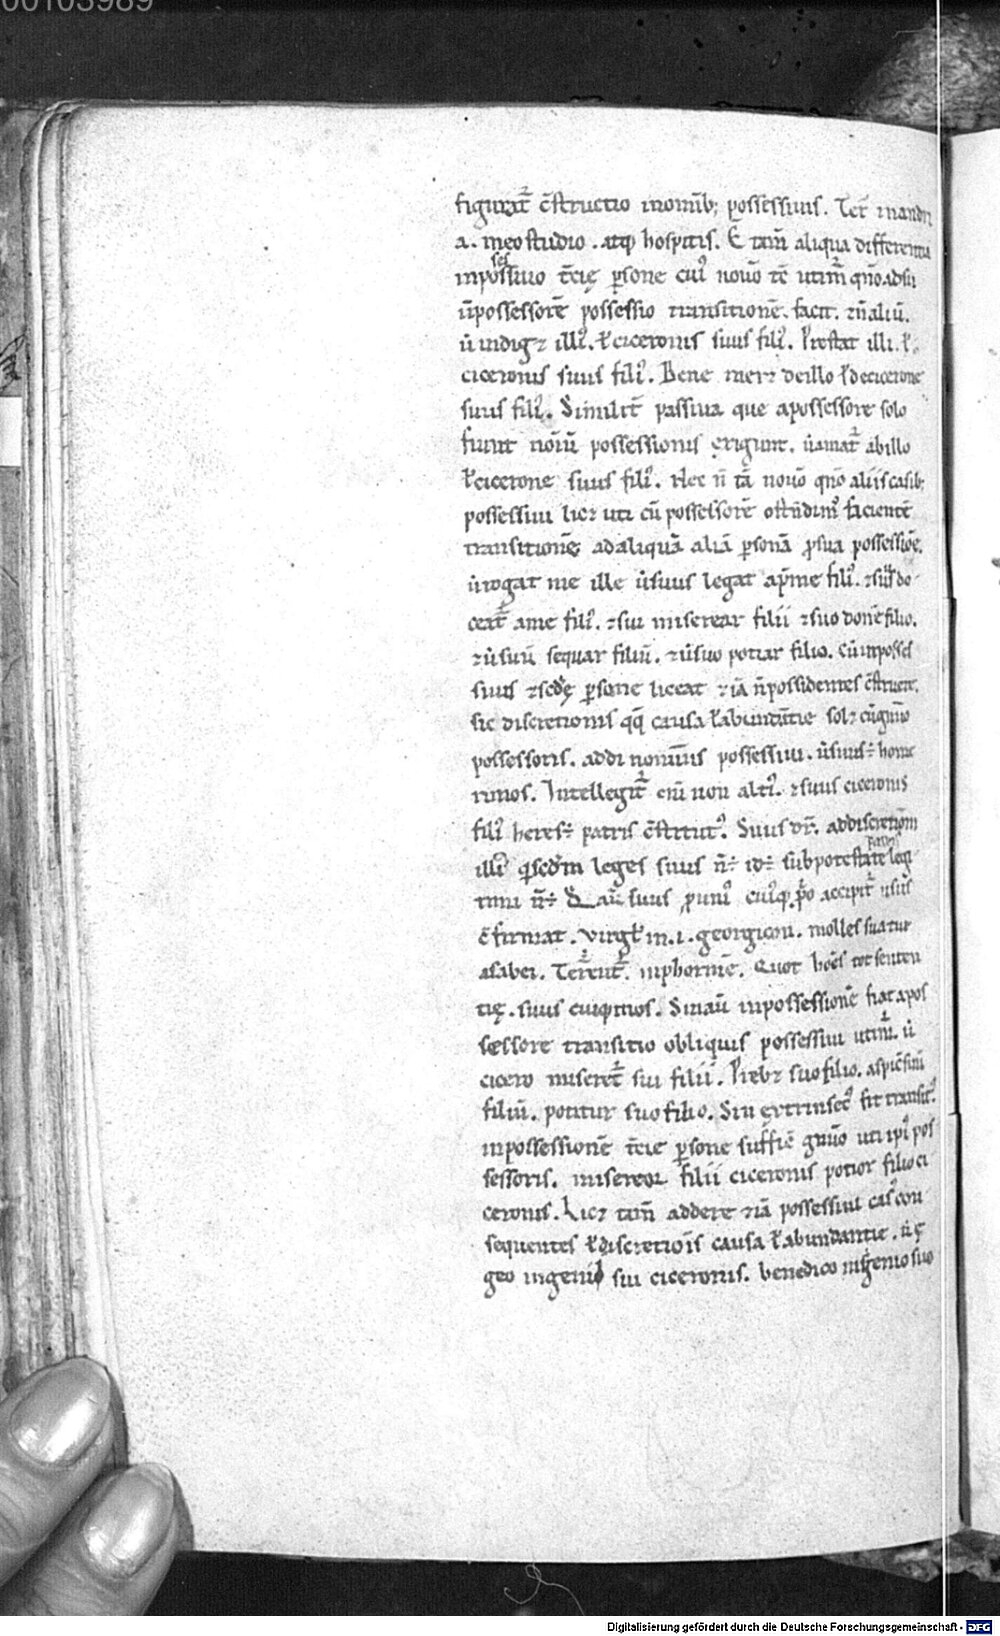 00103989
figurat᷑ c̄structio inomīb; possessiuis. Ter̄ inandri
a. meo studio. atq; hospitis. Ē tam̄ aliqua differentia
inpossessiuo t̄cię ꝑsone cui᷒ nouō tē utim᷑ qn̄o adsu
ūpossessorē possessio transitionē. facit. ⁊n̄aliū.
ū indig⁊ illi᷒. ł ciceronis suus fili᷒. P̄restat illi. ł.
ciceronis suus fili᷒. Bene mer⁊ deillo ł decicerone
suus fili᷒. Similit̄ passiua que apossessore solo
fiunt noīū possessionis exigunt. ūamat᷑ abillo
ł cicerone suus fili᷒. Nec n̄ tā nouō qn̄o aliis casib;
possessiui lic⁊ uti cū possessorē ostēdim᷒ facientē
transitionē adaliquā aliā ꝑsonā ꝓsua possessiōe.
ūrogat me ille ūsuus legat ap̄me fili᷒. ⁊suus do
ceat᷑ ame fili᷒. ⁊sui miserear filii ⁊suo donē filio.
⁊ūsuū sequar filiū. ⁊ūsuo potiar filio. Cū inposses
siuis ⁊scd̄ę ꝑsone liceat ⁊iā n̄possidentes c̄struere.
sic discretionis qq̄ causa ł abundantie sol⁊ cūgn̄uo
possessoris. addi nominis possessiui. ūsuus ÷ home
rimos. Intellegit᷑ eni non alti᷒. ⁊suus ciceronis
fili᷒ heres ÷ patris c̄stitut᷒. Suus dr̄. addiscretionem
illi᷒ q̄ scd̄m leges suus n̄ ÷ id ÷ subpotestate patris legi
timi n̄ ÷ Q̄d au̅ suus ꝓuni᷒ cui᷒q; ꝓp̄o accipit᷑ usus
c̄firmat. Virgł in .i. georgicon. molles sua tur
a sabei. Terent᷑. inphormē. Quot hoēs tot senten
tię. suus cuiq; mos. Sin aū inpossessionē fiat apos
sessore transitio obliquis possessiui utim᷑. ū
cicero miseret᷑ sui filii. P̄reb⁊ suo filio. aspic̄ suū
filiū. potitur suo filio. Sin extrinsec᷒ fit transit᷒.
inpossessionē t̄cie ꝑsone suffic̄ gn̄uo uti ipi᷒ pos
sessoris. misereor filii ciceronis potior filio ci
ceronis. Lic⁊ tam̄ addere ⁊iā possessiui cas᷒ con
sequentes ł discretiōis causa ł abundantie. ū ę
geo ingenii sui ciceronis. benedico ingenio suo
Digitalisierung gefördert durch die Deutsche Forschungsgemeinschaft - DFG